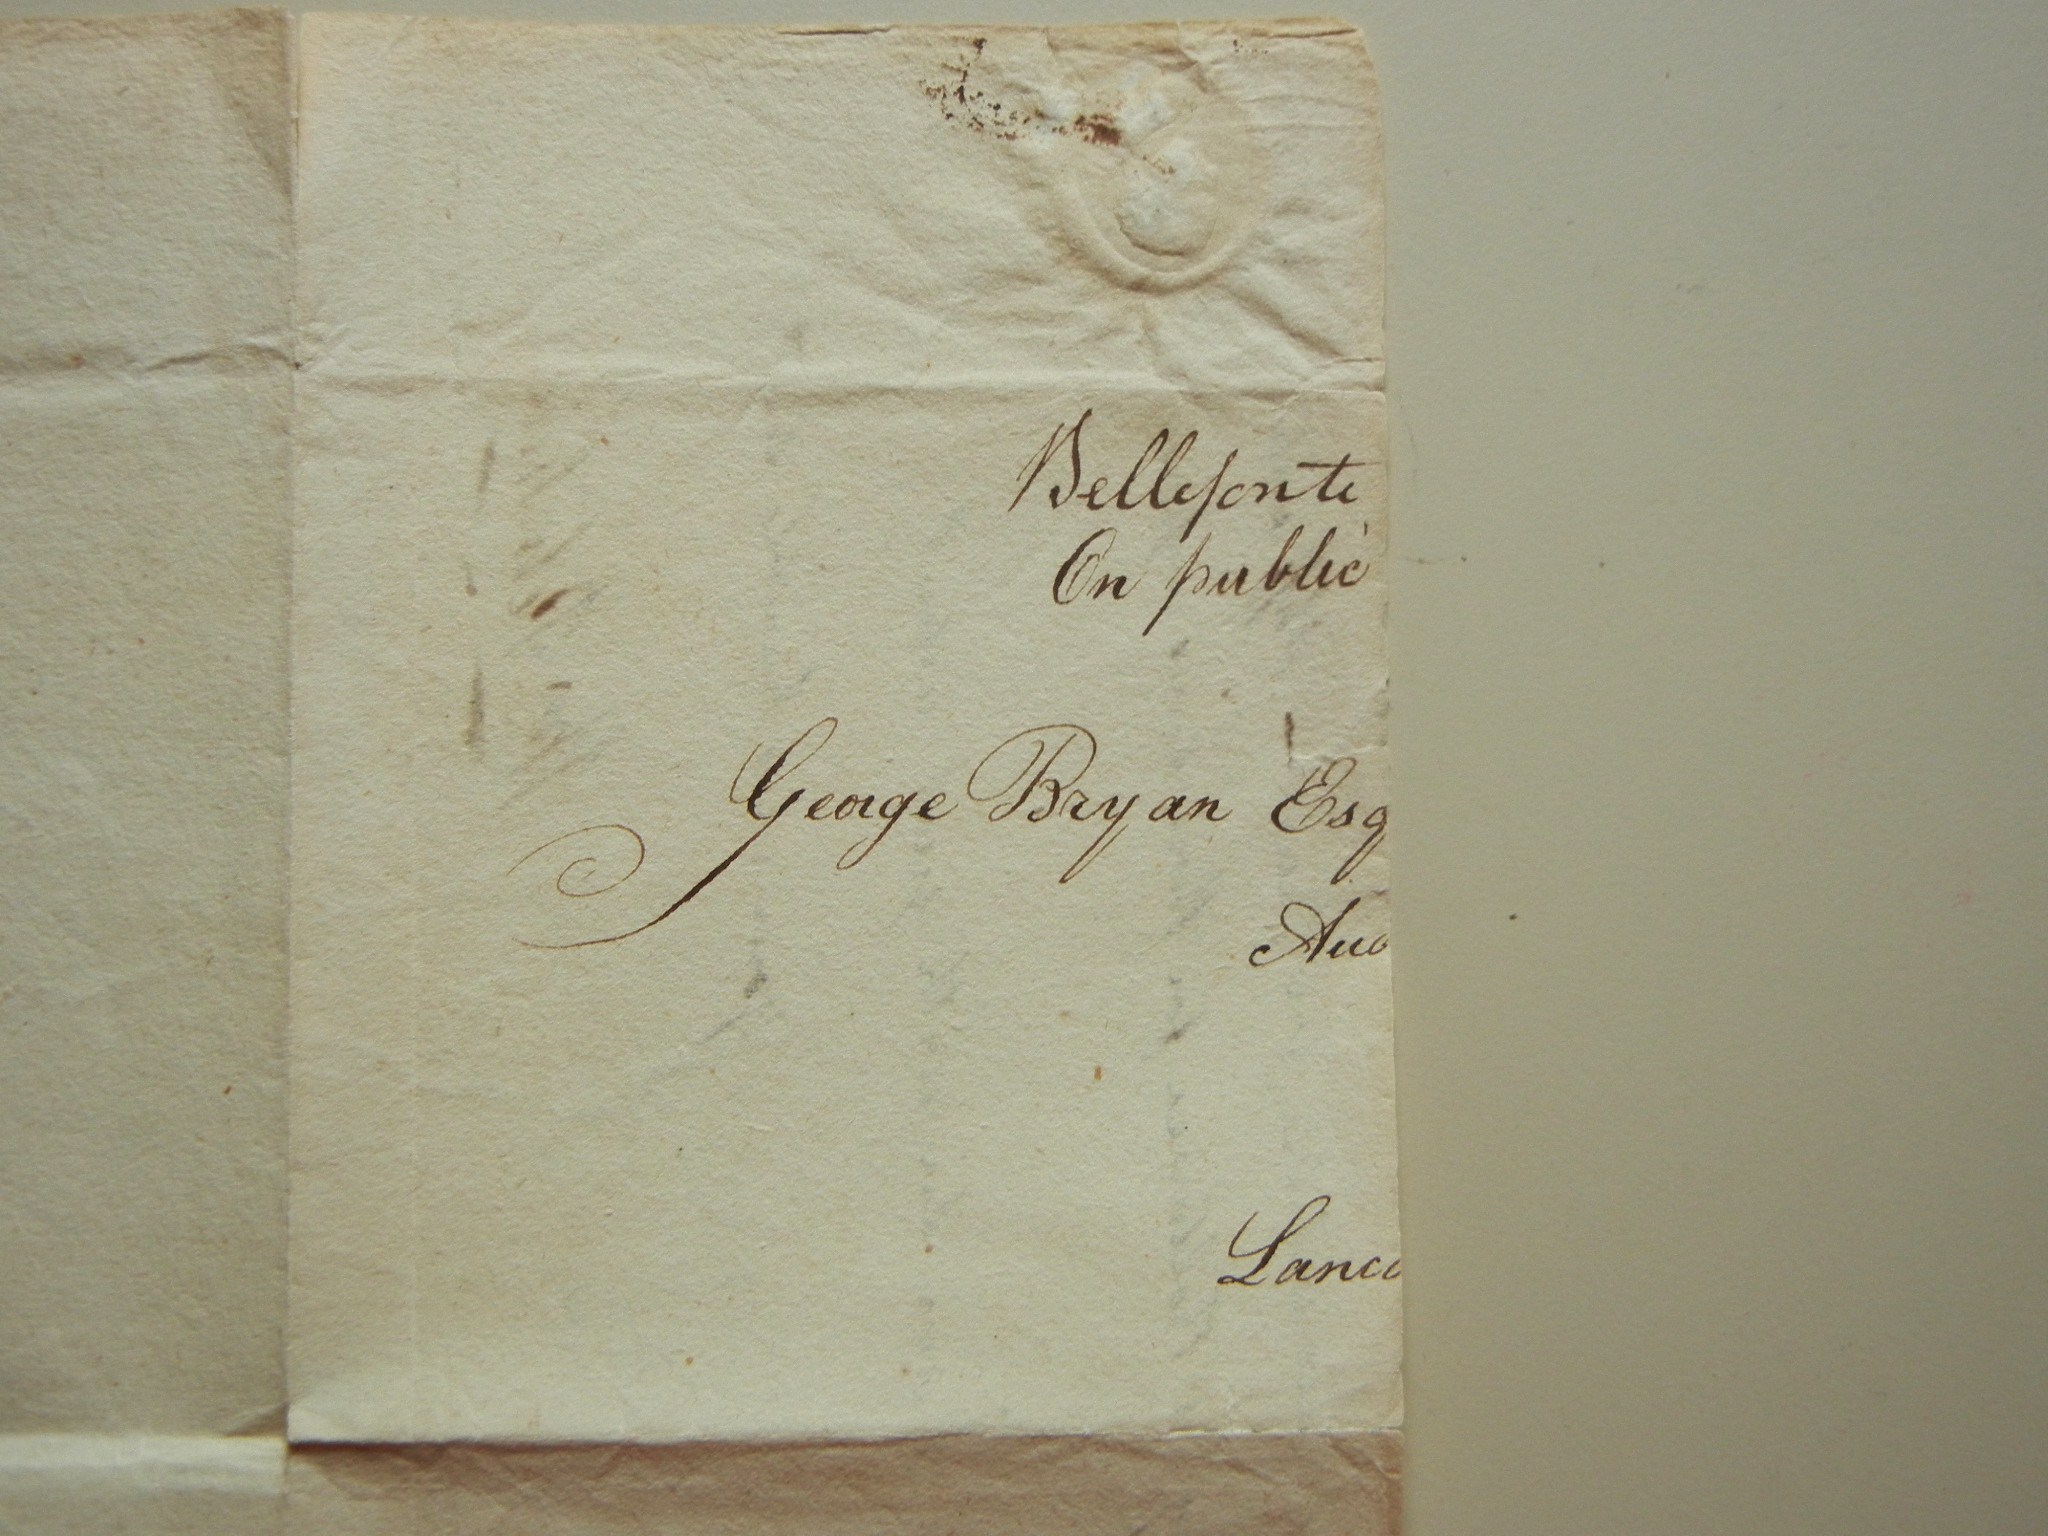 Bellefonte
On public
George Bryan Esq
Aud
Lanca